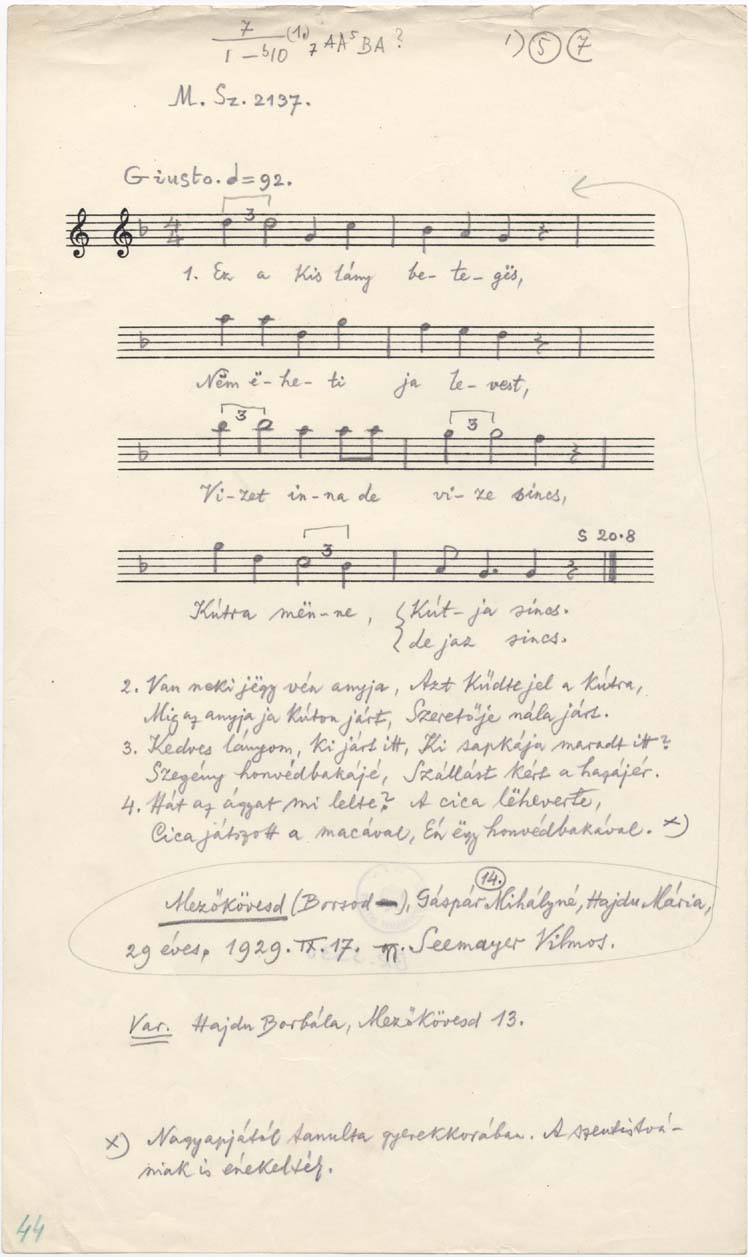 7 (1.) 7 AA⁵BA? 1) 5 7
1 – b10
M. Sz. 2137.
Giusto. = 92.
3
4
4
1. Ez a kis lány be- te- gës,
Nëm ë- he- ti ja le- vest,
3 3
Vi- zet in- na de vi- ze sincs,
S 20.8
3
Kútra mën- ne, { Kút- ja sincs.
de jaz sincs.
2. Van neki jëgy vén anyja, Azt küdte jel a kútra,
Mig az anyja ja kúton járt, Szeretője nála járt.
3. Kedves lányom, ki járt itt, Ki sapkája maradt itt?
Szegény honvédbakájé, Szállást kért a hazájér.
4. Hát az ágyat mi lelte? A cica lëheverte,
Cica játszott a macával, Én ëgy honvédbakával. x)
Mezőkövesd (Borsod), Gáspár Mihályné, Hajdu Mária,
14.
29 éves, 1929. IX. 17. Seemayer Vilmos.
Var. Hajdu Borbála, Mezőkövesd 13.
x) Nagyapjától tanulta gyerekkorában. A szentistvá-
niak is énekelték.
44